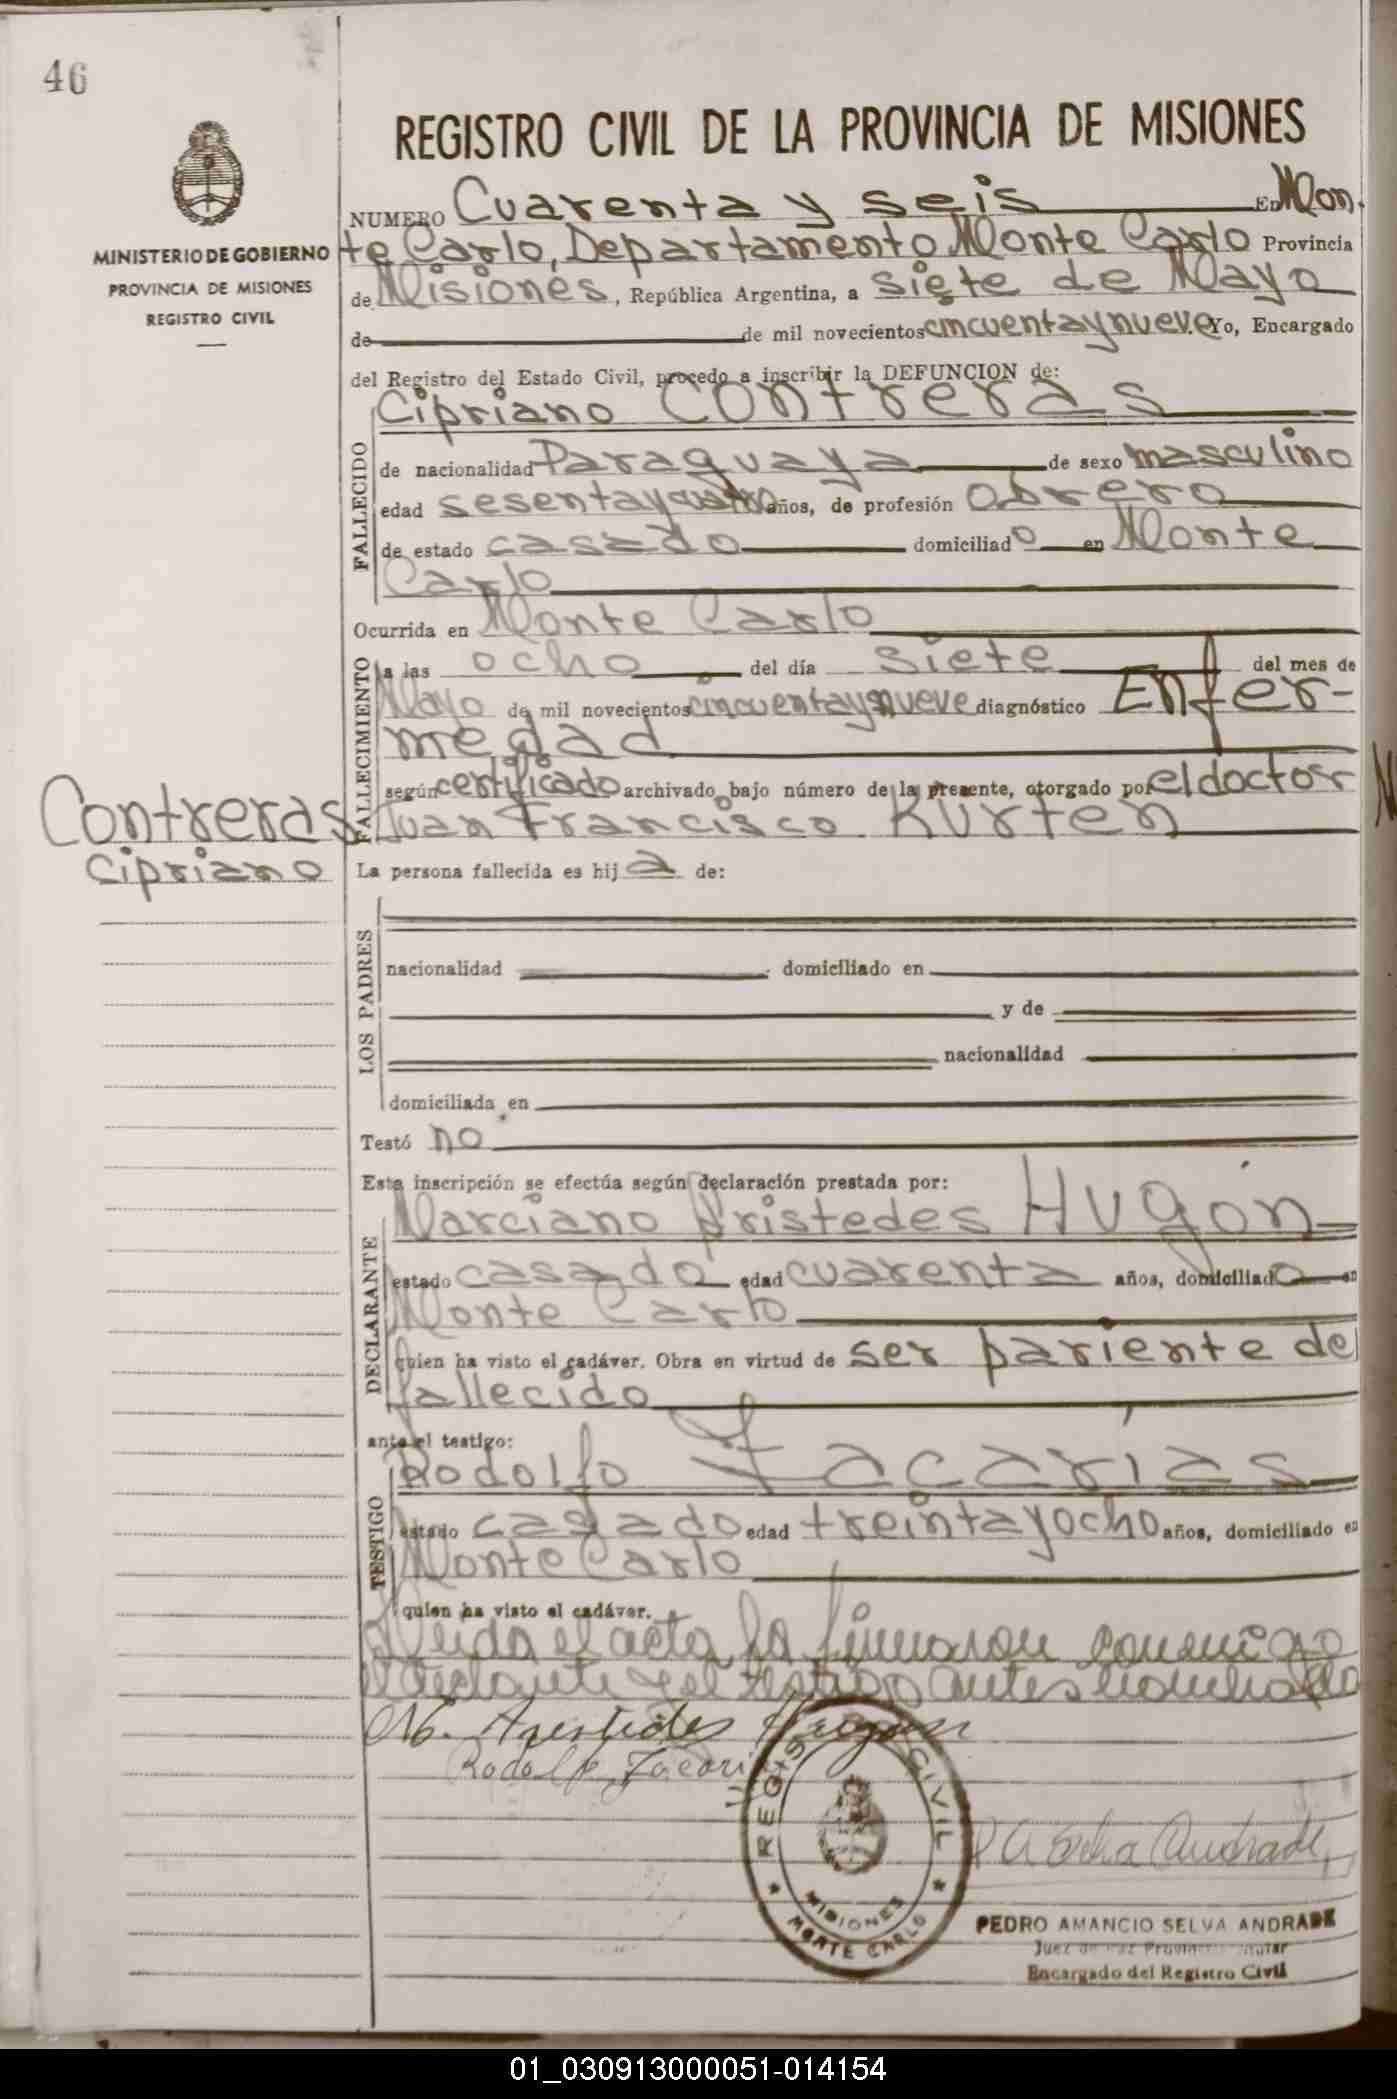 46
MINISTERIO DE GOBIERNO
PROVINCIA DE MISIONES
REGISTRO CIVIL
REGISTRO CIVIL DE LA PROVINCIA DE MISIONES
NUMERO Cuarenta y seis En Mon-
te Carlo, Departamento Monte Carlo Provincia
de Misiones, República Argentina, a siete de Mayo
de de mil novecientos cincuentaynueve. Yo, Encargado
del Registro del Estado Civil, procedo a inscribir la DEFUNCION de:
Cipriano Contreras
FALLECIDO
de nacionalidad Paraguaya de sexo masculino
edad sesentaycuatro años, de profesión obrero
de estado casado domiciliado en Monte
Carlo
Ocurrida en Monte Carlo
FALLECIMIENTO
a las ocho del día siete del mes de
Mayo de mil novecientos cincuentaynueve diagnóstico Enfer-
medad
según certificado archivado bajo número de la presente, otorgado por el doctor
Juan Francisco Kurten
Contreras
Cipriano
La persona fallecida es hija de:
LOS PADRES
nacionalidad domiciliado en
y de
nacionalidad
domiciliada en
Testó no
Esta inscripción se efectúa según declaración prestada por:
DECLARANTE
Marciano Aristedes Hugón
estado casado edad cuarenta años, domiciliado en
Monte Carlo
quien ha visto el cadáver. Obra en virtud de ser pariente del
fallecido
ante el testigo:
TESTIGO
Rodolfo Zacarías
estado casado edad treintayocho años, domiciliado en
Monte Carlo
quien ha visto el cadáver.
Leida el acta la firmaron conmigo
el declarante y el testigo antes nombrado
M. Aristides Hugon
Rodolfo Zacari
REGISTRO CIVIL
MISIONES
MONTE CARLO
P A Selva Andrade
PEDRO AMANCIO SELVA ANDRADE
Juez de Paz
Encargado del Registro Civil
01_030913000051-014154